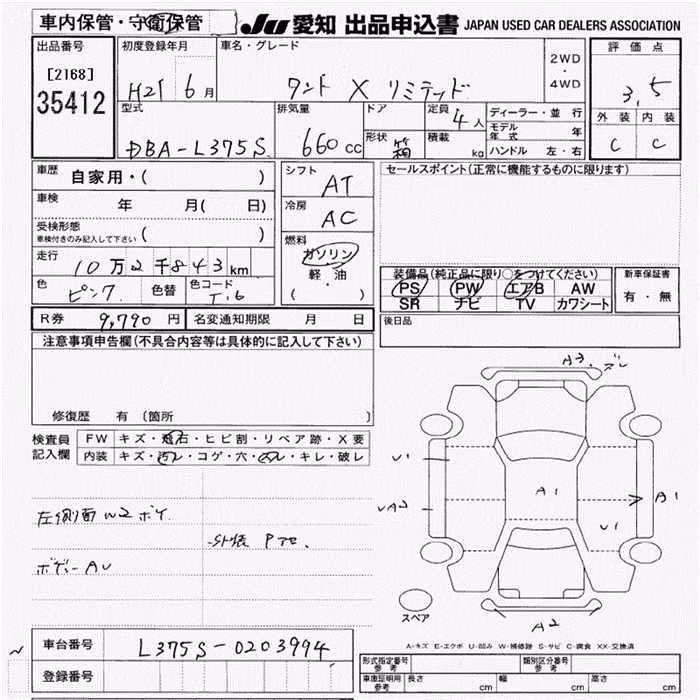 車内保管・守衛保管
JU 愛知 出品申込書 JAPAN USED CAR DEALERS ASSOCIATION
出品番号
[2168]
35412
初度登録年月
H21 6月
車名・グレード
タント X リミテッド
2WD
・
4WD
評価点
3.5
外装 内装
C C
型式
DBA-L375S
排気量
660cc
ドア
形状 箱
定員 4人
積載 kg
ディーラー・並行
モデル年式 年
ハンドル 左・右
車歴
自家用・( )
車検
年 月( 日)
受検形態
車検付きのみ記入して下さい ( )
走行
10万2千843km
色
ピンク
色替
色コード
T.6
シフト
AT
冷房
AC
燃料
ガソリン
軽・油
・( )
セールスポイント(正常に機能するものに限ります)
装備品(純正品に限り○をつけてください)
PS PW エアB AW
SR ナビ TV カワシート
新車保証書
有・無
R券 9,790円 名変通知期限 月 日
後日品
注意事項申告欄(不具合内容等は具体的に記入して下さい)
修復歴 有 (箇所 )
検査員
記入欄
FW キズ・飛石・ヒビ割・リペア跡・X要
内装 キズ・汚レ・コゲ・穴・スレ・キレ・破レ
左側面W2
ボディーAU
外装
A3.ズレ
U1
A1
A1
UA2
U1
A2
スペア
A-キズ E-エクボ U-凹み W-補修跡 S-サビ C-腐食 XX-交換済
車台番号 L375S-0203994
登録番号
形式指定番号
参考
類別区分番号
参考
車庫証明用
参考
長さ cm 幅 cm 高さ cm